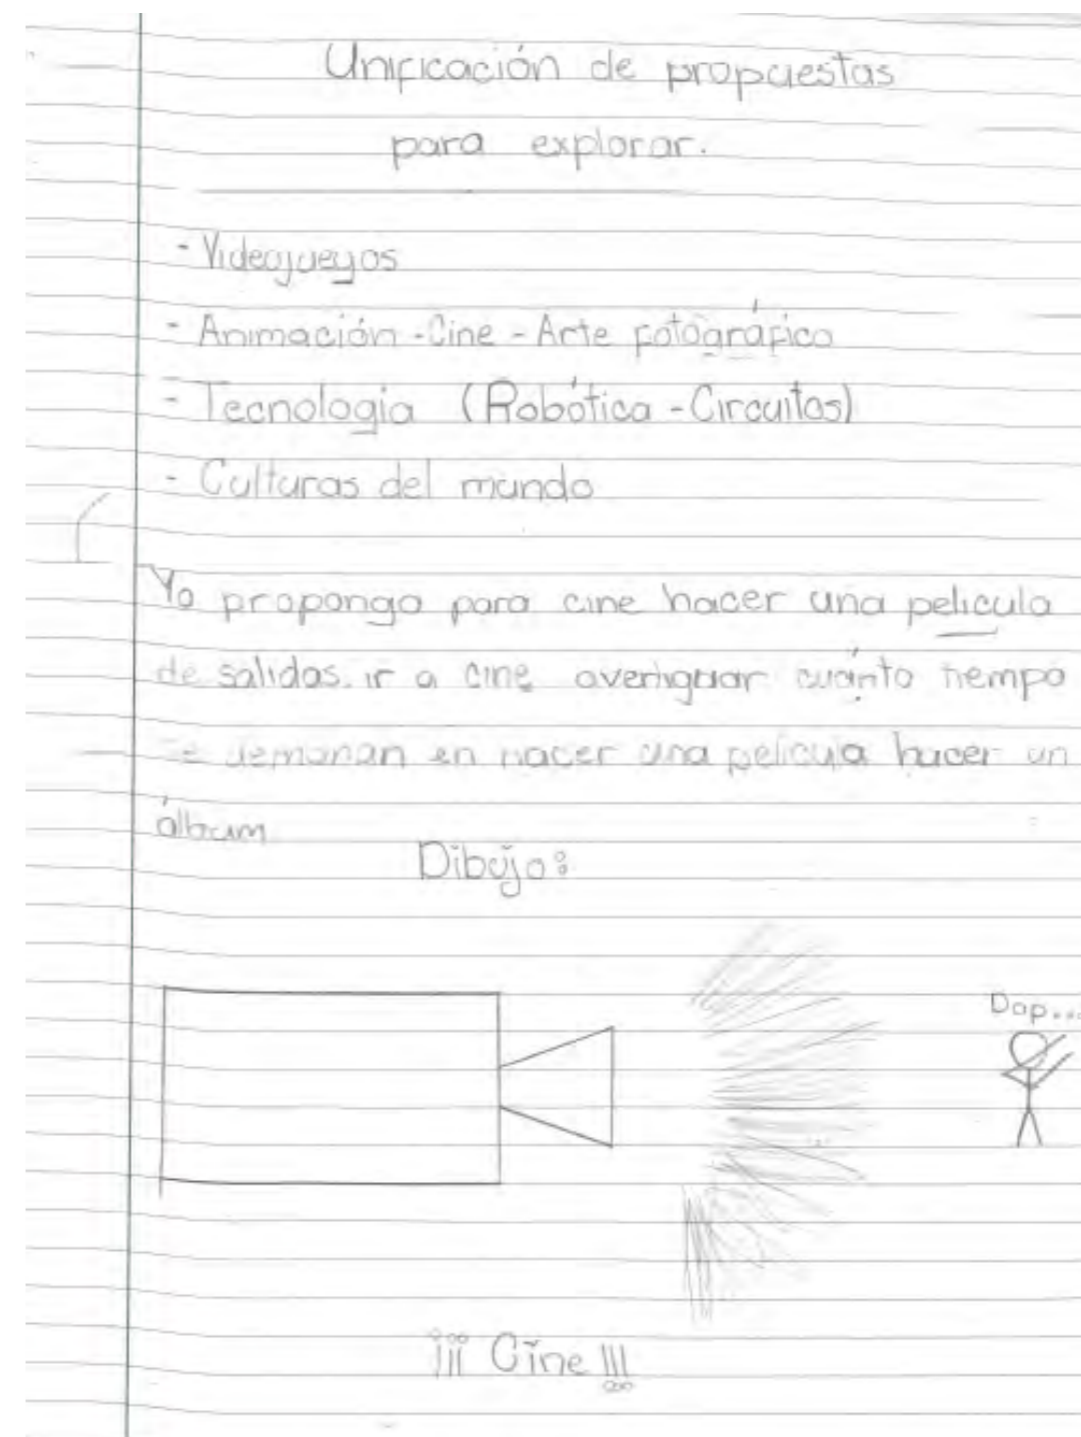 Unificación de propuestas
para explorar.
- Videojuegos
- Animación - Cine - Arte fotográfico
- Tecnologia (Robótica - Circuitos)
- Culturas del mundo
Yo propongo para cine hacer una pelicula
de salidas. ir a cine averiguar cuánto tiempo
se demoran en hacer una pelicula hacer un
álbum
Dibujo:
Dap...
¡¡¡ Cine !!!